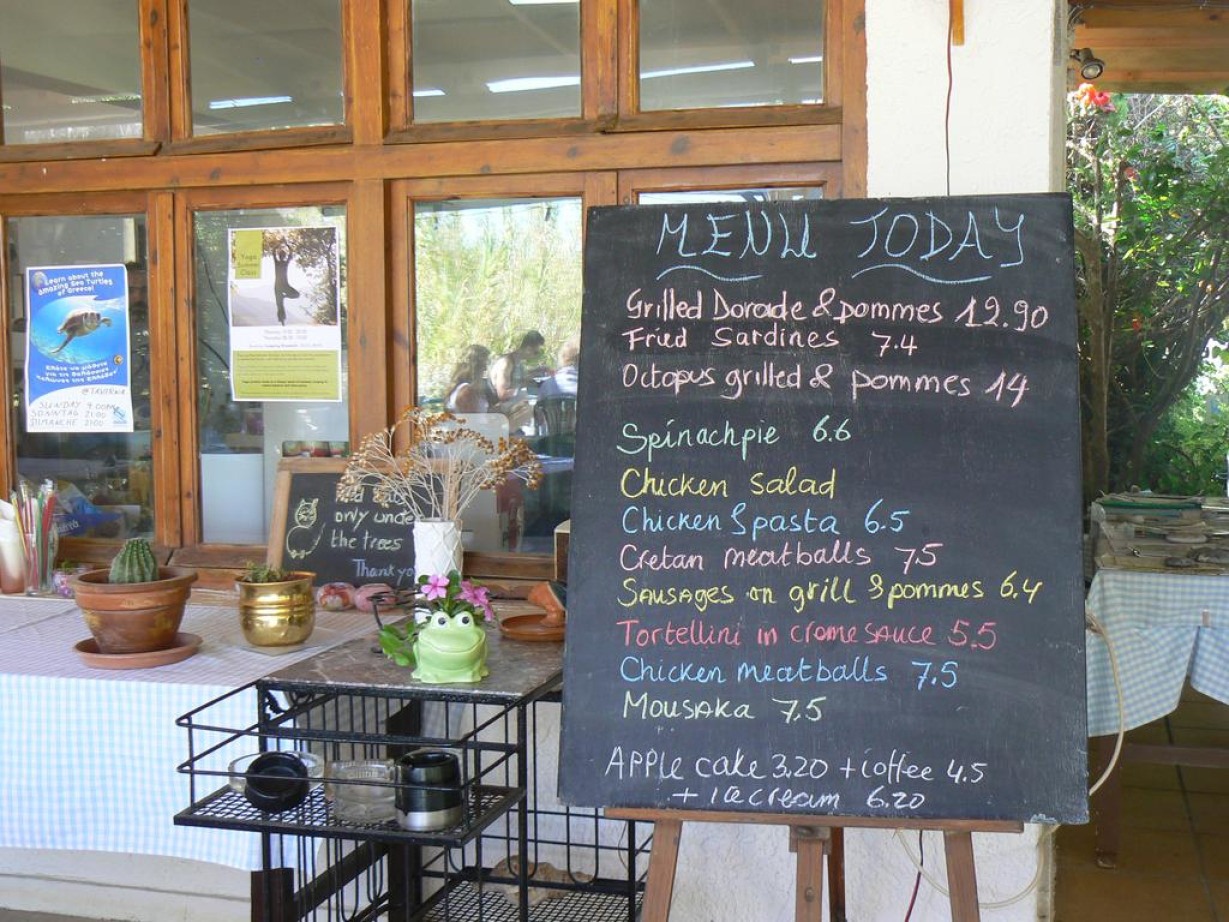 MENU TODAY
Grilled Dorade & pommes 12.90
Fried Sardines 7.4
Octopus grilled & pommes 14
Spinachpie 6.6
Chicken Salad
Chicken & pasta 6.5
Cretan meatballs 7.5
SAUSAGES on grill & pommes 6.4
Tortellini in creme SAUCE 5.5
Chicken meatballs 7.5
MOUSAKA 7.5
APPle cake 3.20 + coffee 4.5
+ ice cream 6.20
Learn about the
amazing Sea Turtles
of Greece!
SUNDAY 9.00
SONNTAG 21:00
DIMANCHE 21:00
Yoga
Summer
Class
only unde
the trees
Thank yo